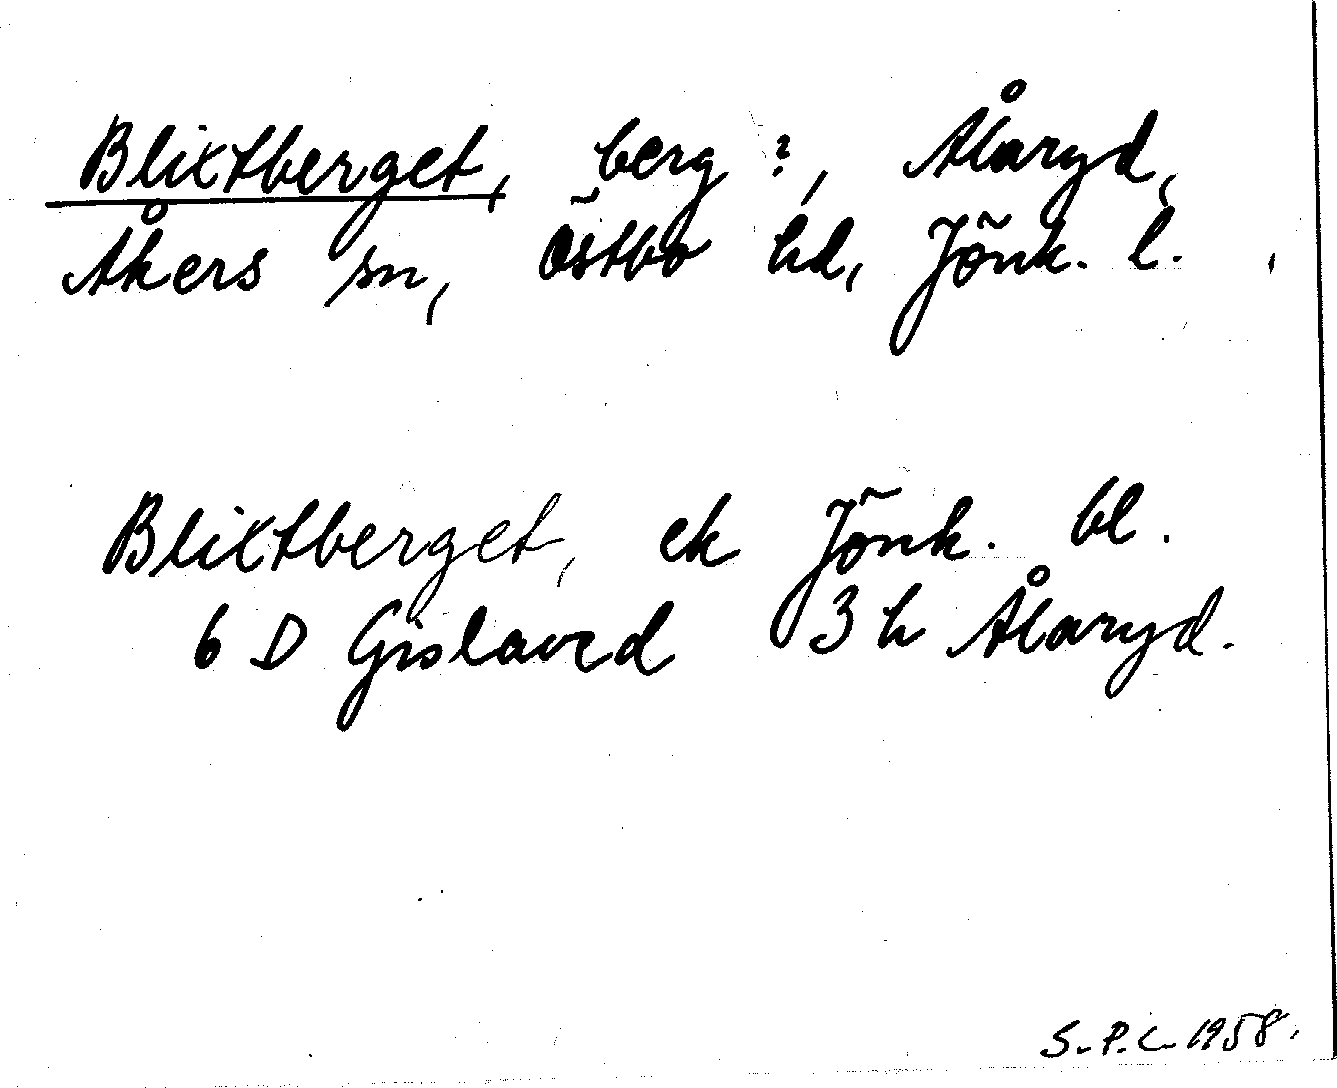 Blixtberget, berg ?, Ålaryd,
Åkers sn, Östbo hd, Jönk. l.
Blixtberget, ek Jönk. bl.
6 D Gislaved 3 h Ålaryd.
S.P.L. 1958.